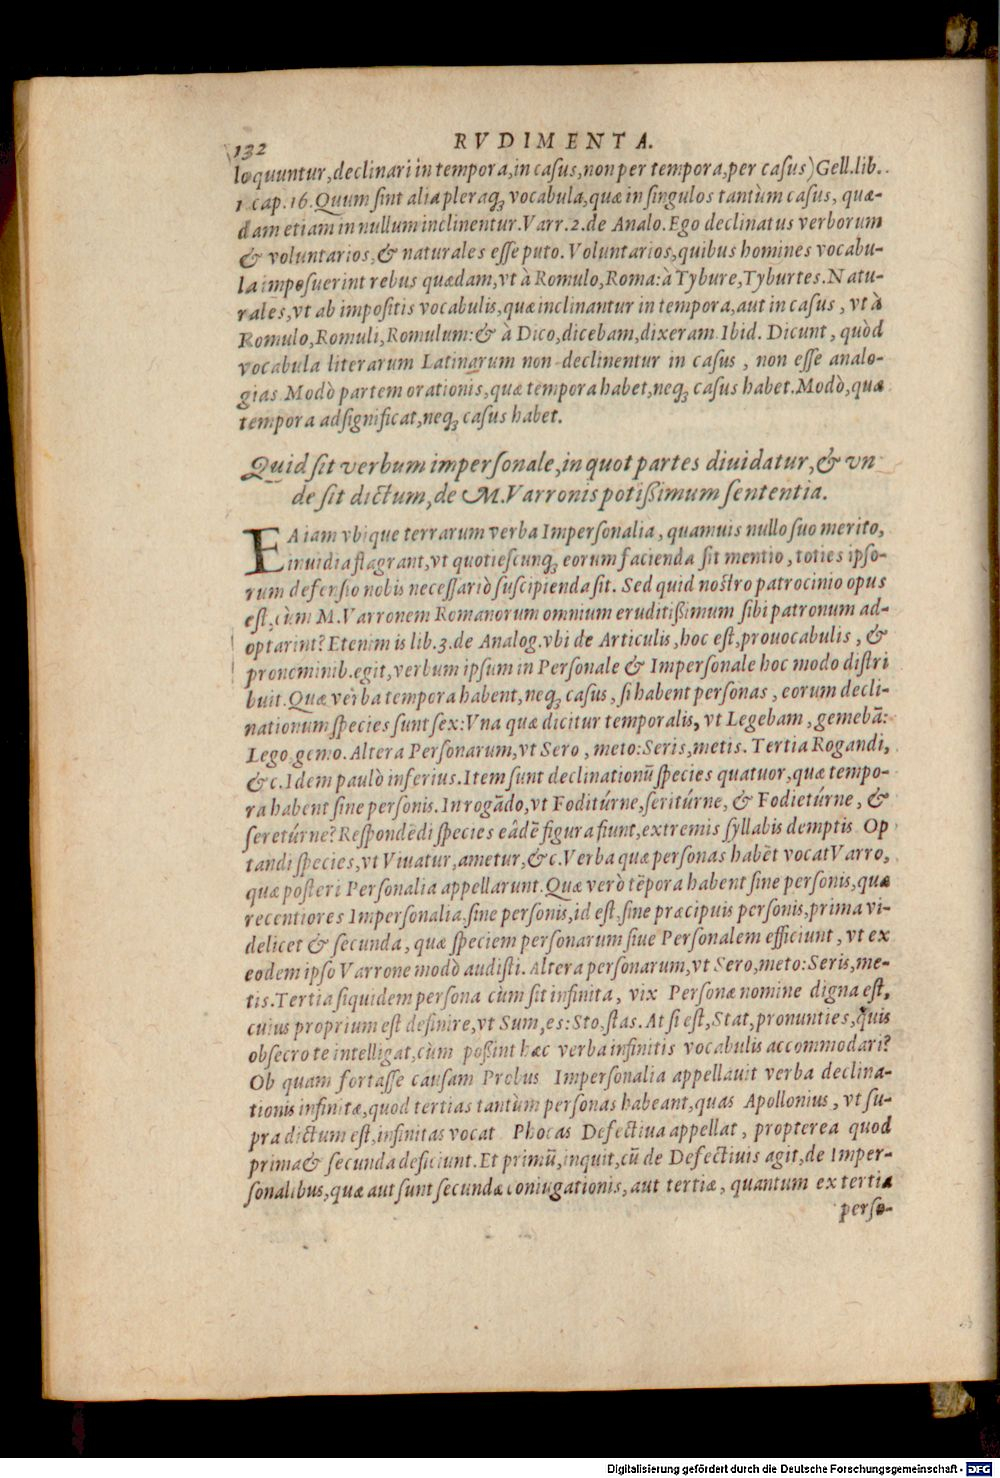 132
RVDIMENTA.
loquuntur, declinari in tempora, in casus, non per tempora, per casus) Gell. lib.
1 cap. 16. Quum sint alia pleraq; vocabula, quæ in singulos tantùm casus, quæ-
dam etiam in nullum inclinentur. Varr. 2. de Analo. Ego declinatus verborum
& voluntarios, & naturales esse puto. Voluntarios, quibus homines vocabu-
la imposuerint rebus quædam, vt à Romulo, Roma: à Tybure, Tyburtes. Natu-
rales, vt ab impositis vocabulis, quæ inclinantur in tempora, aut in casus, vt à
Romulo, Romuli, Romulum: & à Dico, dicebam, dixeram. Ibid. Dicunt, quòd
vocabula literarum Latinarum non declinentur in casus, non esse analo-
gias. Modò partem orationis, quæ tempora habet, neq; casus habet. Modò, quæ
tempora adsignificat, neq; casus habet.
Quid sit verbum impersonale, in quot partes diuidatur, & vn
de sit dictum, de M. Varronis potißimum sententia.
EA iam vbique terrarum verba Impersonalia, quamuis nullo suo merito,
inuidia flagrant, vt quotiescunq; eorum facienda sit mentio, toties ipso-
rum defensio nobis necessariò suscipienda sit. Sed quid nostro patrocinio opus
est, cùm M. Varronem Romanorum omnium eruditißimum sibi patronum ad-
optarint? Etenim is lib. 3. de Analog. vbi de Articulis, hoc est, prouocabulis, &
pronominib. egit, verbum ipsum in Personale & Impersonale hoc modo distri
buit. Quæ verba tempora habent, neq; casus, si habent personas, eorum decli-
nationum species sunt sex: Vna quæ dicitur temporalis, vt Legebam, gemebā:
Lego gemo. Altera Personarum, vt Sero, meto: Seris, metis. Tertia Rogandi,
&c. Idem paulò inferius. Item sunt declinationū species quatuor, quæ tempo-
ra habent sine personis. In rogādo, vt Foditúrne, seritúrne, & Fodietúrne, &
seretúrne? Respondēdi species eâdē figura fiunt, extremis syllabis demptis. Op
tandi species, vt Viuatur, ametur, &c. Verba quæ personas habēt vocat Varro,
quæ posteri Personalia appellarunt. Quæ verò tēpora habent sine personis, quæ
recentiores Impersonalia, sine personis, id est, sine præcipuis personis, prima vi-
delicet & secunda, quæ speciem personarum siue Personalem efficiunt, vt ex
eodem ipso Varrone modò audisti. Altera personarum, vt Sero, meto: Seris, me-
tis. Tertia siquidem persona cùm sit infinita, vix Personæ nomine digna est,
cuius proprium est definire, vt Sum, es: Sto, stas. At si est, Stat, pronunties, quis
obsecro te intelligat, cùm poßint hæc verba infinitis vocabulis accommodari?
Ob quam fortasse causam Probus Impersonalia appellauit verba declina-
tionis infinitæ, quod tertias tantùm personas habeant, quas Apollonius, vt su-
pra dictum est, infinitas vocat. Phocas Defectiua appellat, propterea quod
prima & secunda deficiunt. Et primū, inquit, cū de Defectiuis agit, de Imper-
sonalibus, quæ aut sunt secundæ coniugationis, aut tertiæ, quantum ex tertia
perso-
Digitalisierung gefördert durch die Deutsche Forschungsgemeinschaft - DFG